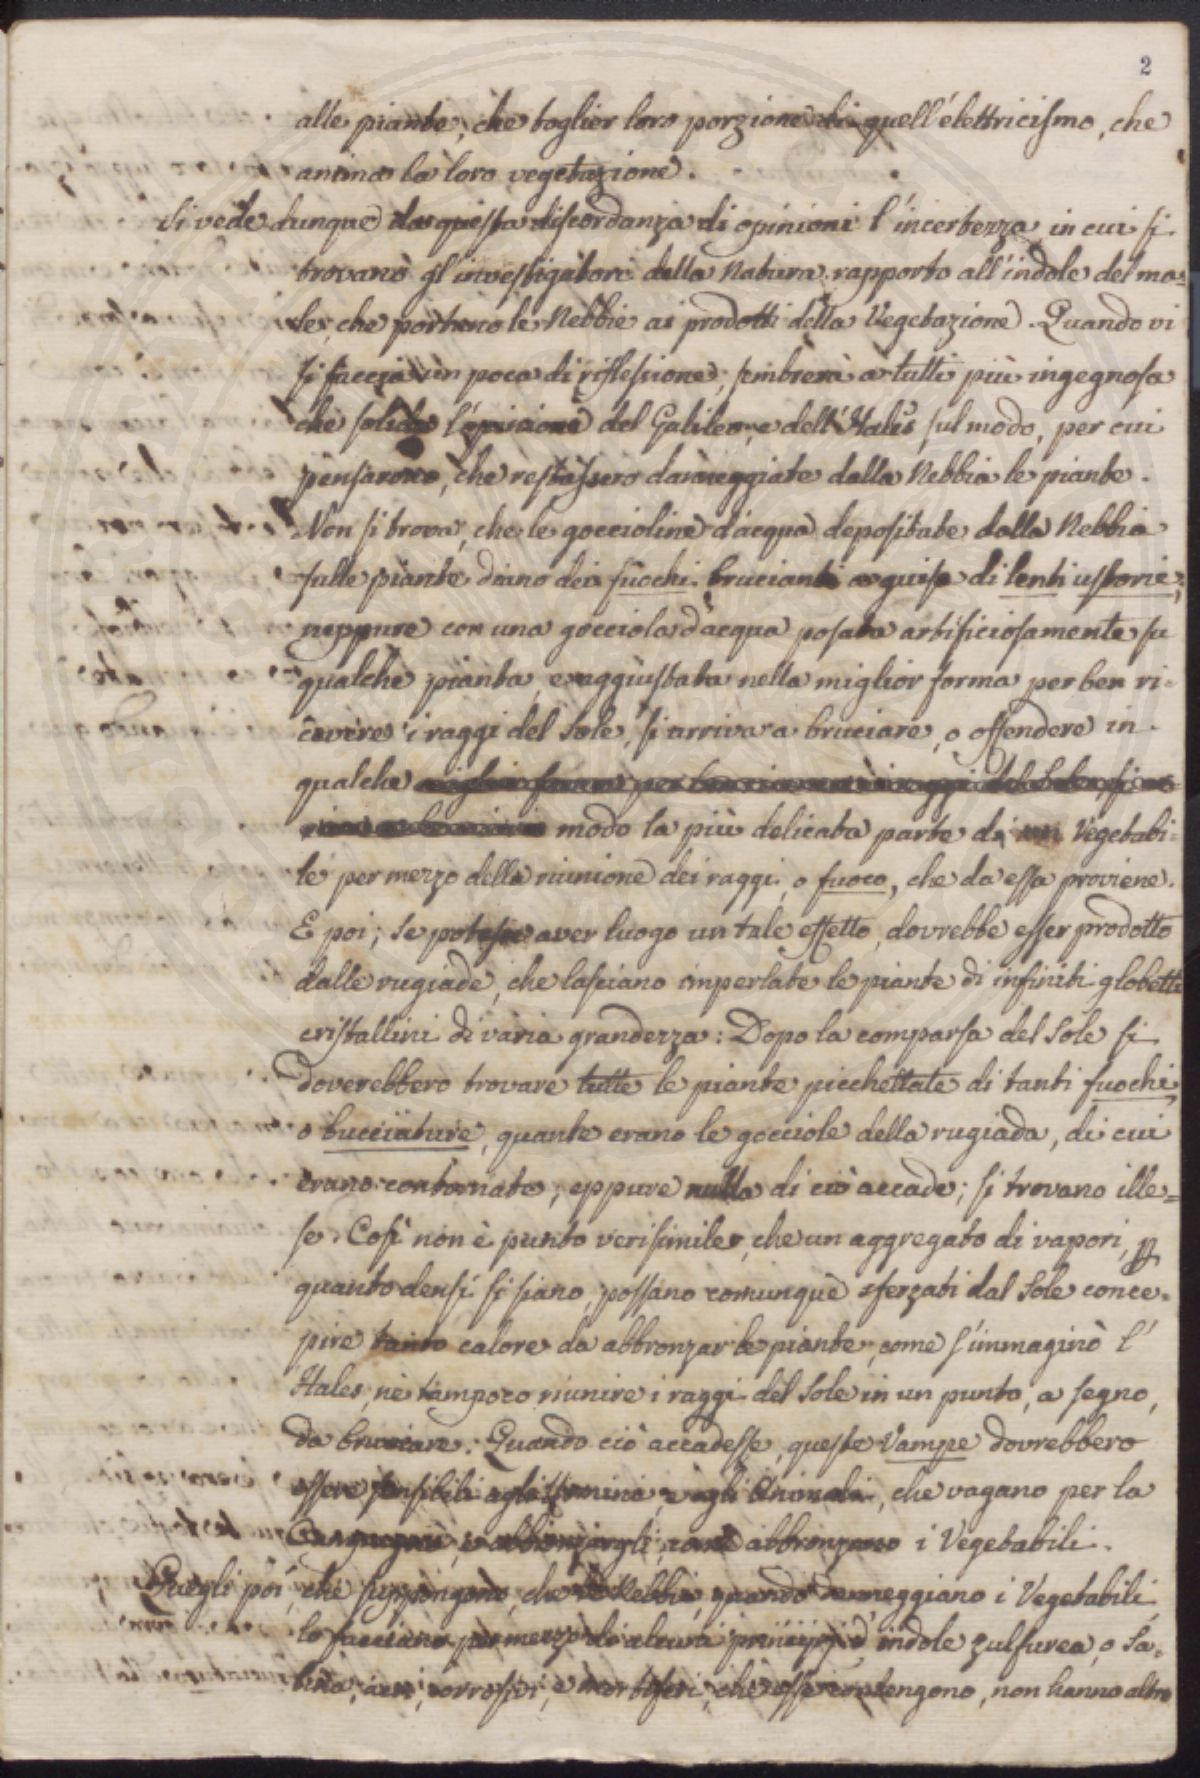 2
alle piante, che toglier loro porzione di quell'elettricismo, che
anima la loro vegetazione.
Si vede dunque da questa discordanza di opinioni l'incertezza in cui si
trovano gl'investigatori della Natura rapporto all'indole del ma=
le, che portano le Nebbie ai prodotti della Vegetazione. Quando vi
si faccia un poco di riflessione, sembrerà a tutti più ingegnosa
che solida l'opinione del Galileo, e dell'Hales sul modo, per cui
pensarono, che restassero danneggiate dalla Nebbia le piante.
Non si trova, che le goccioline d'acqua depositate dalla Nebbia
sulle piante diano dei fuochi brucianti a guisa di lenti ustorie;
neppure con una gocciola d'acqua posata artificiosamente su
qualche pianta, e aggiustata nella miglior forma per ben ri=
cevere i raggi del Sole, si arriva a bruciare, o offendere in
qualche miglior forma per ben ricevere i raggi del Sole si ar=
riva a bruciare modo la più delicata parte di un Vegetabi=
le per mezzo della riunione dei raggi, o fuoco, che da essa proviene.
E poi; se potesse aver luogo un tale effetto, dovrebbe esser prodotto
dalle rugiade, che lasciano imperlate le piante di infiniti globetti
cristallini di varia grandezza: Dopo la comparsa del Sole si
doverebbero trovare tutte le piante picchettate di tanti fuochi,
o bucciature, quante erano le gocciole della rugiada, di cui
erano contornate; eppure nulla di ciò accade; si trovano ille=
se. Così non è punto verisimile, che un aggregato di vapori, p
quanto densi si siano, possano comunque sferzati dal Sole conce=
pire tanto calore da abbronzar le piante, come s'immaginò l'
Hales, nè tampoco riunire i raggi del Sole in un punto, a segno,
da bruciare. Quando ciò accadesse, queste Vampe dovrebbero
essere sensibili agli uomini, e agli Animali, che vagano per la
Campagna, e abbronzargli, come abbronzano i Vegetabili.
Quegli poi, che suppongono, che le Nebbie, quando danneggiano i Vegetabili
lo facciano per mezzo di alcuni principj d'indole zulfurea, o sa=
lina, acri, corrosivi, e mortiferi, che esse contengono, non hanno altro